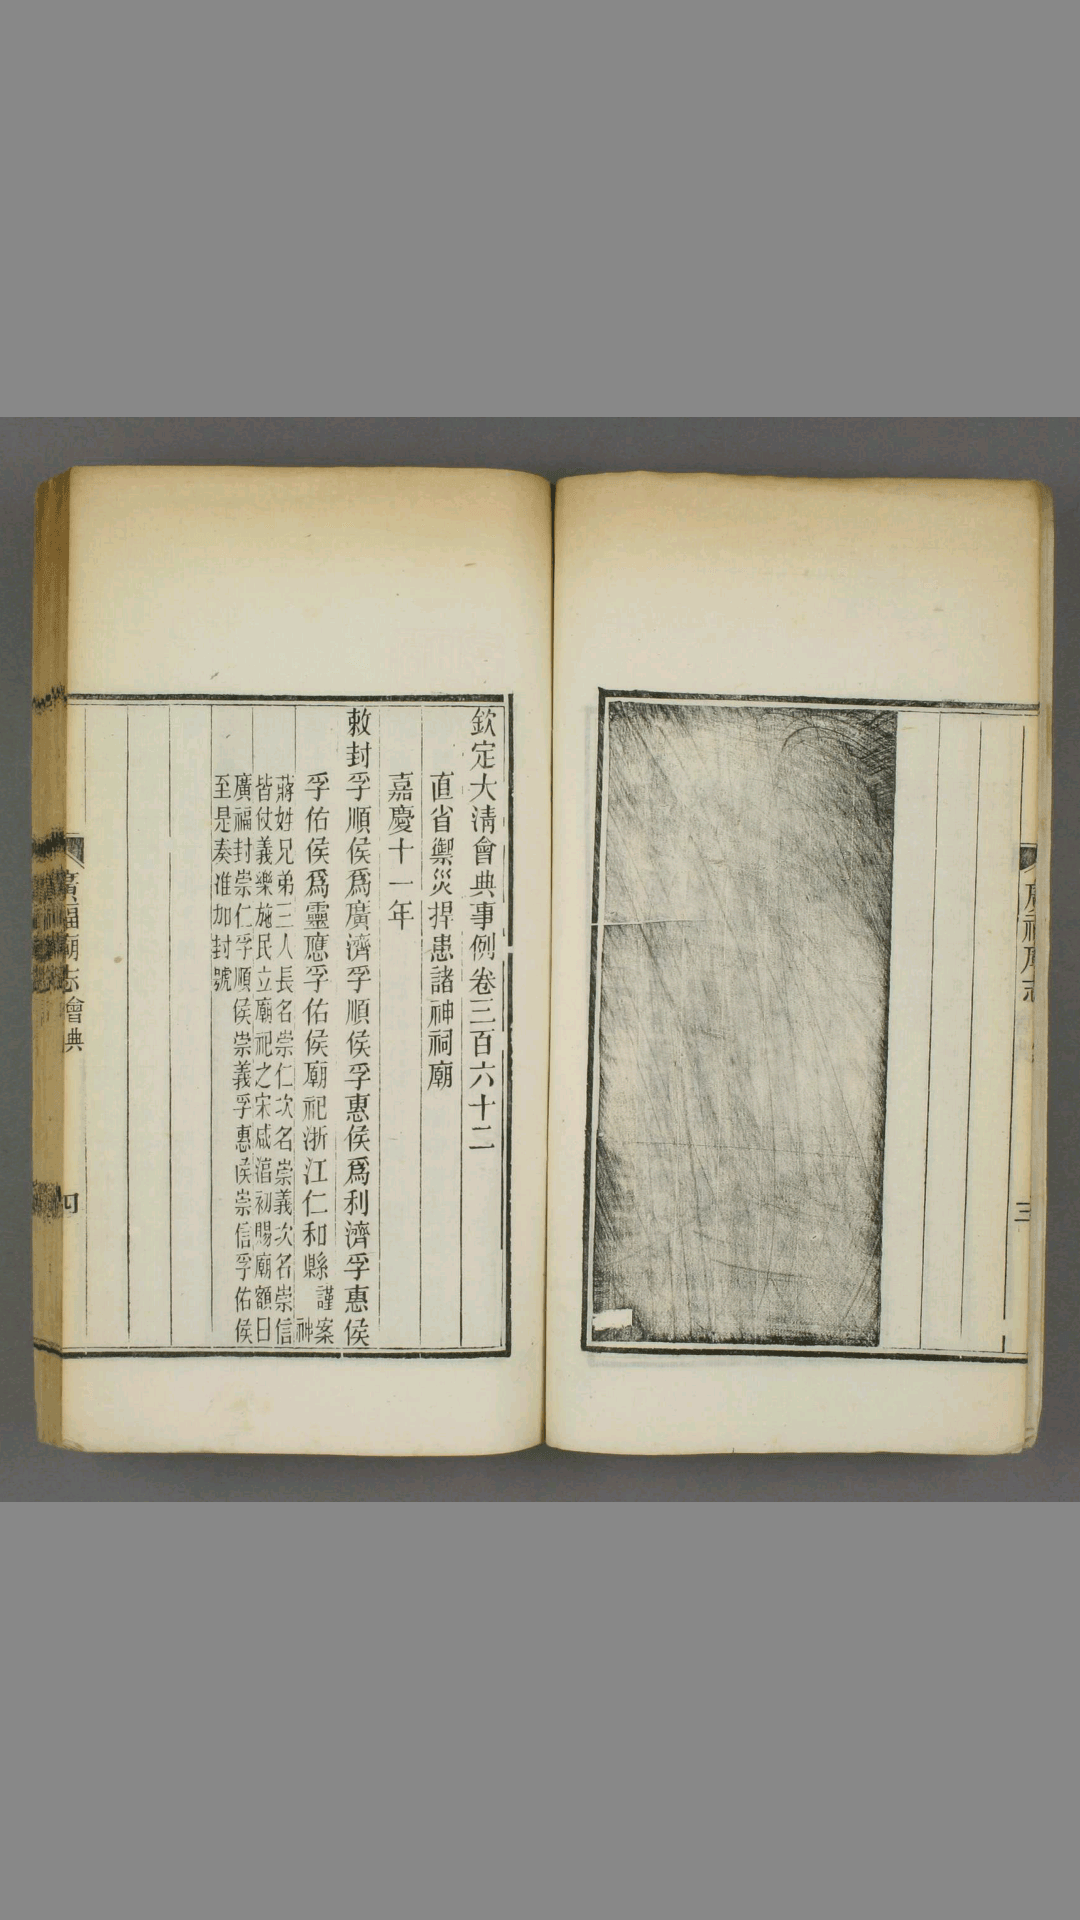 廣福廟志
三
欽定大淸會典事例卷三百六十二
直省禦災捍患諸神祠廟
嘉慶十一年
敕封孚順侯爲廣濟孚順侯孚惠侯爲利濟孚惠侯
孚佑侯爲靈應孚佑侯廟祀浙江仁和縣謹案
神
蔣姓兄弟三人長名崇仁次名崇義次名崇信
皆仗義樂施民立廟祀之宋咸淳初賜廟額曰
廣福封崇仁孚順侯崇義孚惠侯崇信孚佑侯
至是奏准加封號
廣福廟志會典
四